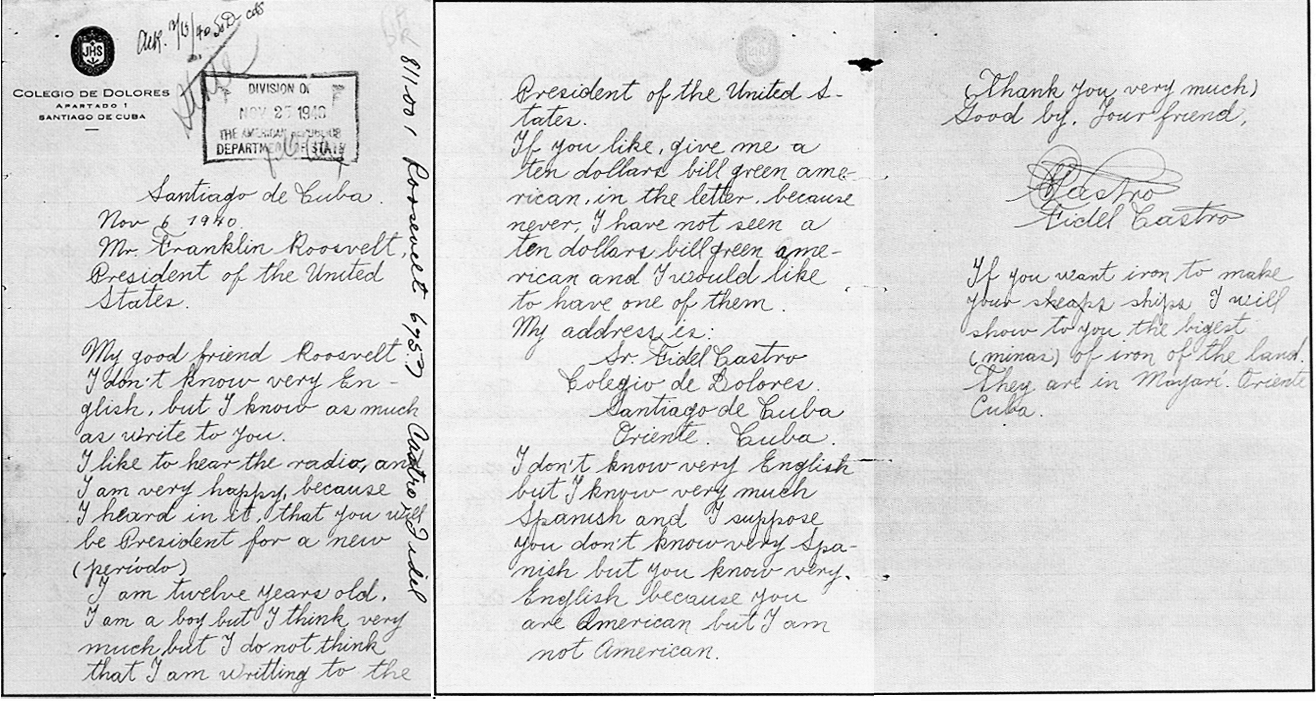 JHS
COLEGIO DE DOLORES
APARTADO 1
SANTIAGO DE CUBA
DIVISION OF
NOV 25 1940
THE AMERICAN REPUBLICS
DEPARTMENT OF STATE
Santiago de Cuba.
Nov 6 1940
Mr. Franklin Roosvelt,
President of the United
States.
My good friend Roosvelt
I don't know very En-
glish, but I know as much
as write to you.
I like to hear the radio, and
I am very happy, because
I heard in it, that you will
be President for a new
(periodo)
I am twelve years old.
I am a boy but I think very
much but I do not think
that I am writting to the
811.001 Roosevelt Castro Fidel
President of the United S-
tates.
If you like, give me a
ten dollars bill green ame-
rican, in the letter, because
never, I have not seen a
ten dollars bill green ame-
rican and I would like
to have one of them.
My address is:
Sr. Fidel Castro
Colegio de Dolores.
Santiago de Cuba
Oriente. Cuba.
I don't know very English
but I know very much
Spanish and I suppose
you don't know very Spa-
nish but you know very
English because you
are American but I am
not American.
(Thank you very much)
Good by. Your friend,
Castro
Fidel Castro
If you want iron to make
your ships I will
show to you the bigest
(minas) of iron of the land.
They are in Mayarí. Oriente
Cuba.